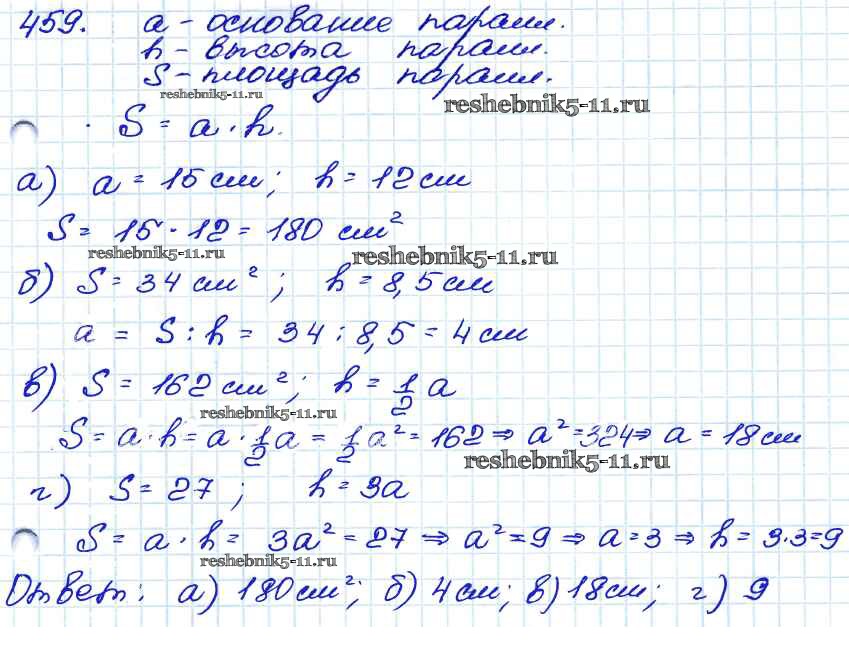 459. a - основание паралл.
h - высота паралл.
S - площадь паралл.
reshebnik5-11.ru
reshebnik5-11.ru
S = a · h.
а) a = 15 см; h = 12 см
S = 15 · 12 = 180 см²
reshebnik5-11.ru
reshebnik5-11.ru
б) S = 34 см²; h = 8,5 см
a = S : h = 34 : 8,5 = 4 см
в) S = 162 см²; h = 1/2 a
reshebnik5-11.ru
S = a · h = a · 1/2 a = 1/2 a² = 162 ⇒ a² = 324 ⇒ a = 18 см
reshebnik5-11.ru
г) S = 27; h = 3a
S = a · h = 3a² = 27 ⇒ a² = 9 ⇒ a = 3 ⇒ h = 3·3 = 9
reshebnik5-11.ru
Ответ: а) 180 см²; б) 4 см; в) 18 см; г) 9